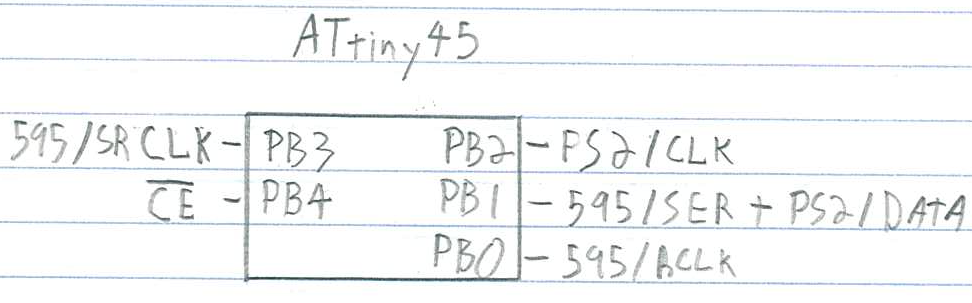 ATtiny45
595/SRCLK - PB3 PB2 - PS2/CLK
C̅E̅ - PB4 PB1 - 595/SER + PS2/DATA
PB0 - 595/RCLK